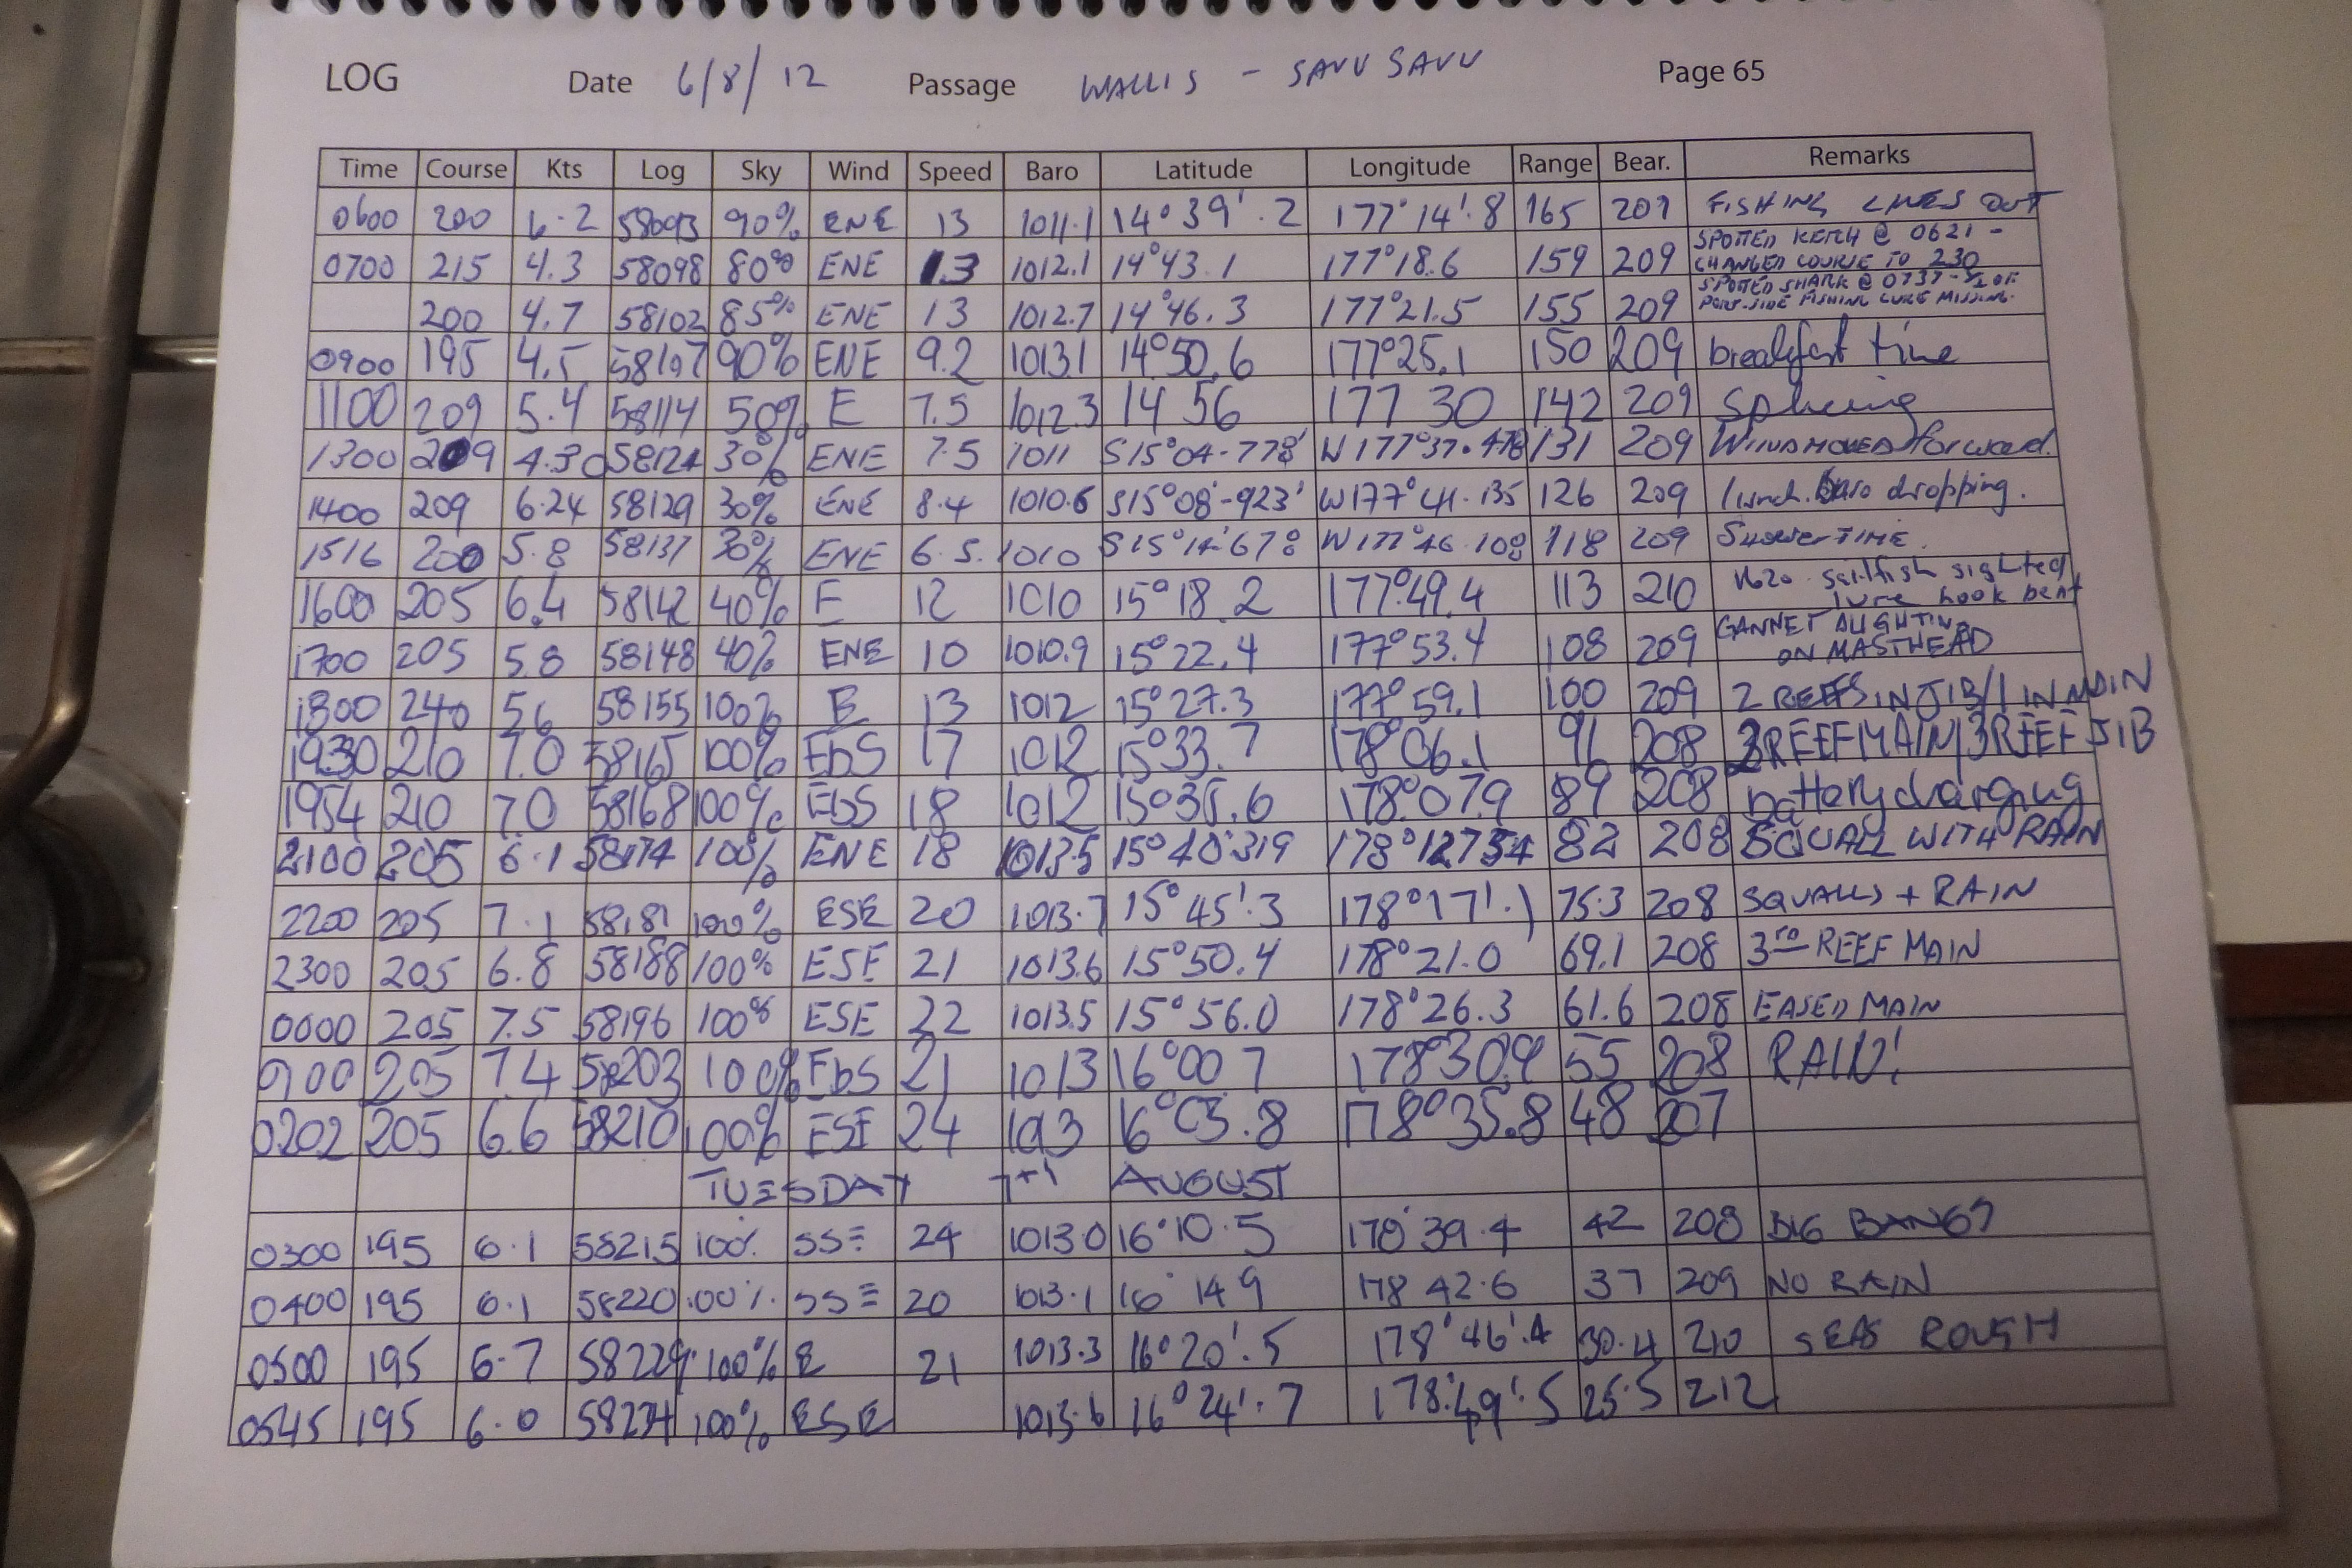 LOG Date 6/8/12 Passage WALLIS - SAVU SAVU Page 65
Time Course Kts Log Sky Wind Speed Baro Latitude Longitude Range Bear. Remarks
0600 200 6.2 58093 90% ENE 13 1011.1 14° 39'.2 177° 14'.8 165 209 FISHING LINES OUT
0700 215 4.3 58098 80% ENE 13 1012.1 14°43.1 177°18.6 159 209 SPOTTED KETCH @ 0621 - CHANGED COURSE TO 230
200 4.7 58102 85% ENE 13 1012.7 14°46.3 177°21.5 155 209 SPOTTED SHARK @ 0737 - 1/2 OF PORT-SIDE FISHING LURE MISSING.
0900 195 4.5 58107 90% ENE 9.2 1013.1 14°50.6 177°25.1 150 209 breakfast time
1100 209 5.4 58114 50% E 7.5 1012.3 14 56 177 30 142 209 Splicing
1300 209 4.30 58124 30% ENE 7.5 1011 S15°04-778' W177°37.478 131 209 WIND MOVED forward.
1400 209 6.24 58129 30% ENE 8.4 1010.6 S15°08'-923' W177°41.135 126 209 lunch. Baro dropping.
1516 200 5.8 58137 30% ENE 6.5. 1010 S15°14'678 W177°46.108 118 209 Shower TIME.
1600 205 6.4 58142 40% E 12 1010 15°18.2 177°49.4 113 210 1620. sailfish sighted lure hook bent
1700 205 5.8 58148 40% ENE 10 1010.9 15°22.4 177°53.4 108 209 GANNET ALIGHTING ON MASTHEAD
1800 240 5.6 58155 100% E 13 1012 15°27.3 177°59.1 100 209 2 REEFS IN JIB/1 IN MAIN
1930 210 7.0 58165 100% EbS 17 1012 15°33.7 178°06.1 91 208 2REEF MAIN/3REEF JIB
1954 210 7.0 58168 100% EbS 18 1012 15°35.6 178°07.9 89 208 battery charging
2100 205 6.1 58174 100% ENE 18 1013.5 15°40'319 178°12754 82 208 SQUALL WITH RAIN
2200 205 7.1 58181 100% ESE 20 1013.7 15°45'.3 178°17'.1 75.3 208 SQUALLS + RAIN
2300 205 6.8 58188 100% ESE 21 1013.6 15°50.4 178°21.0 69.1 208 3RD REEF MAIN
0000 205 7.5 58196 100% ESE 22 1013.5 15°56.0 178°26.3 61.6 208 EASED MAIN
0100 205 7.4 58203 100% EbS 21 1013 16°00 7 178°30.9 55 208 RAIN!
0202 205 6.6 58210 100% ESE 24 1013 16°05.8 178°35.8 48 207
TUESDAY 7th AUGUST
0300 195 6.1 58215 100% SSE 24 1013.0 16°10.5 178°39.4 42 208 BIG BANGS
0400 195 6.1 58220 100% SSE 20 1013.1 16° 14 9 178 42.6 37 209 NO RAIN
0500 195 6.7 58229 100% E 21 1013.3 16°20'.5 178°46'.4 30.4 210 SEAS ROUGH
0545 195 6.0 58234 100% ESE 1013.6 16°24'.7 178°49'.5 25.5 212